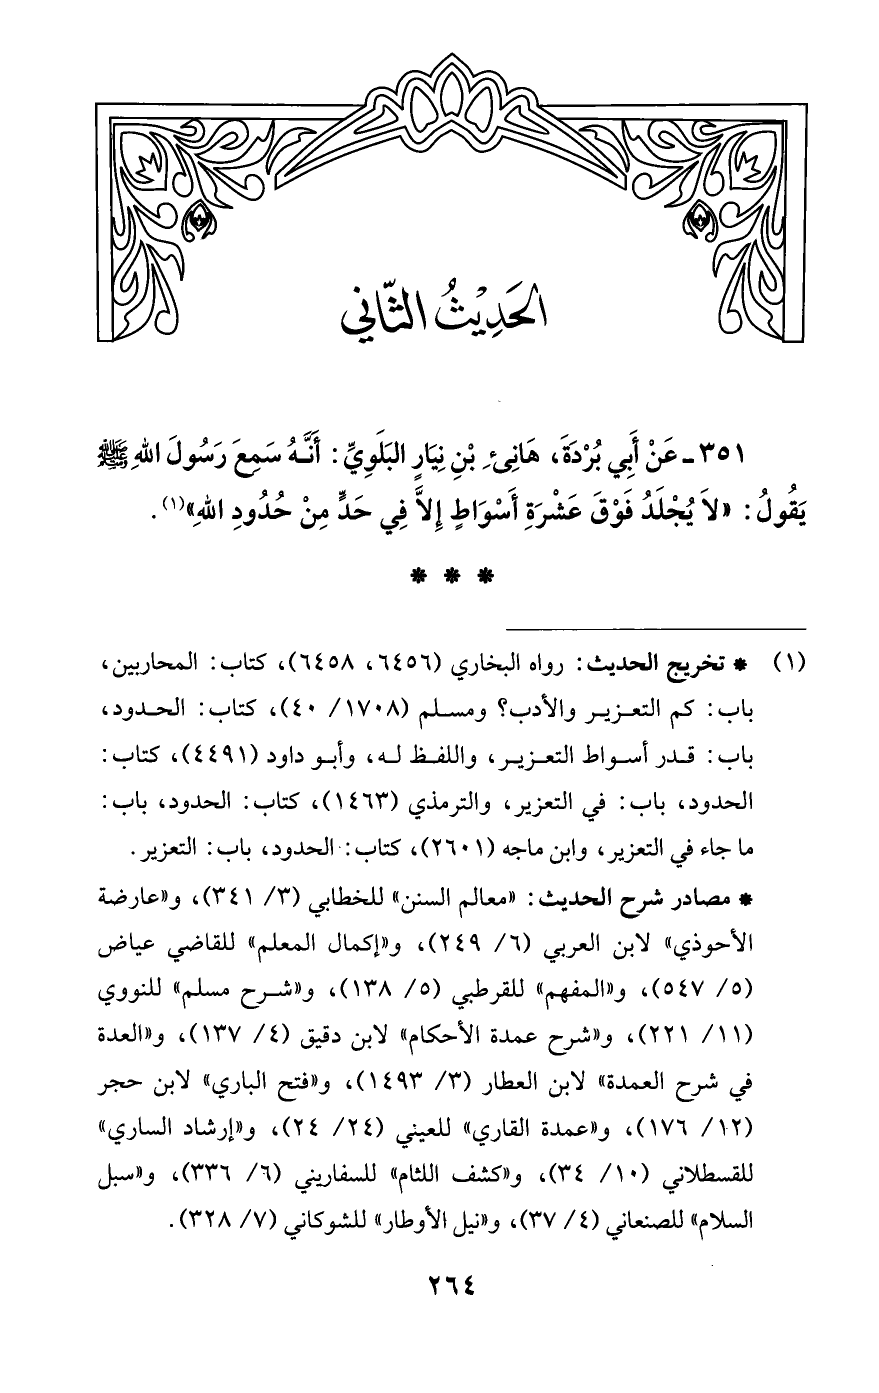 الحَدِيْثُ الثَّانِي
٣٥١ - عَنْ أَبِي بُرْدَةَ، هَانِئِ بْنِ نِيَارٍ البَلَوِيِّ: أَنَّهُ سَمِعَ رَسُولَ اللهِ ﷺ
يَقُولُ: «لاَ يُجْلَدُ فَوْقَ عَشْرَةِ أَسْوَاطٍ إِلاَّ فِي حَدٍّ مِنْ حُدُودِ اللهِ»(١).
* * *
(١) * تخريج الحديث: رواه البخاري (٦٤٥٦، ٦٤٥٨)، كتاب: المحاربين،
باب: كم التعزير والأدب؟ ومسلم (١٧٠٨/ ٤٠)، كتاب: الحدود،
باب: قدر أسواط التعزير، واللفظ له، وأبو داود (٤٤٩١)، كتاب:
الحدود، باب: في التعزير، والترمذي (١٤٦٣)، كتاب: الحدود، باب:
ما جاء في التعزير، وابن ماجه (٢٦٠١)، كتاب: الحدود، باب: التعزير.
* مصادر شرح الحديث: «معالم السنن» للخطابي (٣/ ٣٤١)، و«عارضة
الأحوذي» لابن العربي (٦/ ٢٤٩)، و«إكمال المعلم» للقاضي عياض
(٥/ ٥٤٧)، و«المفهم» للقرطبي (٥/ ١٣٨)، و«شرح مسلم» للنووي
(١١/ ٢٢١)، و«شرح عمدة الأحكام» لابن دقيق (٤/ ١٣٧)، و«العدة
في شرح العمدة» لابن العطار (٣/ ١٤٩٣)، و«فتح الباري» لابن حجر
(١٢/ ١٧٦)، و«عمدة القاري» للعيني (٢٤/ ٢٤)، و«إرشاد الساري»
للقسطلاني (١٠/ ٣٤)، و«كشف اللثام» للسفاريني (٦/ ٣٣٦)، و«سبل
السلام» للصنعاني (٤/ ٣٧)، و«نيل الأوطار» للشوكاني (٧/ ٣٢٨).
٢٦٤